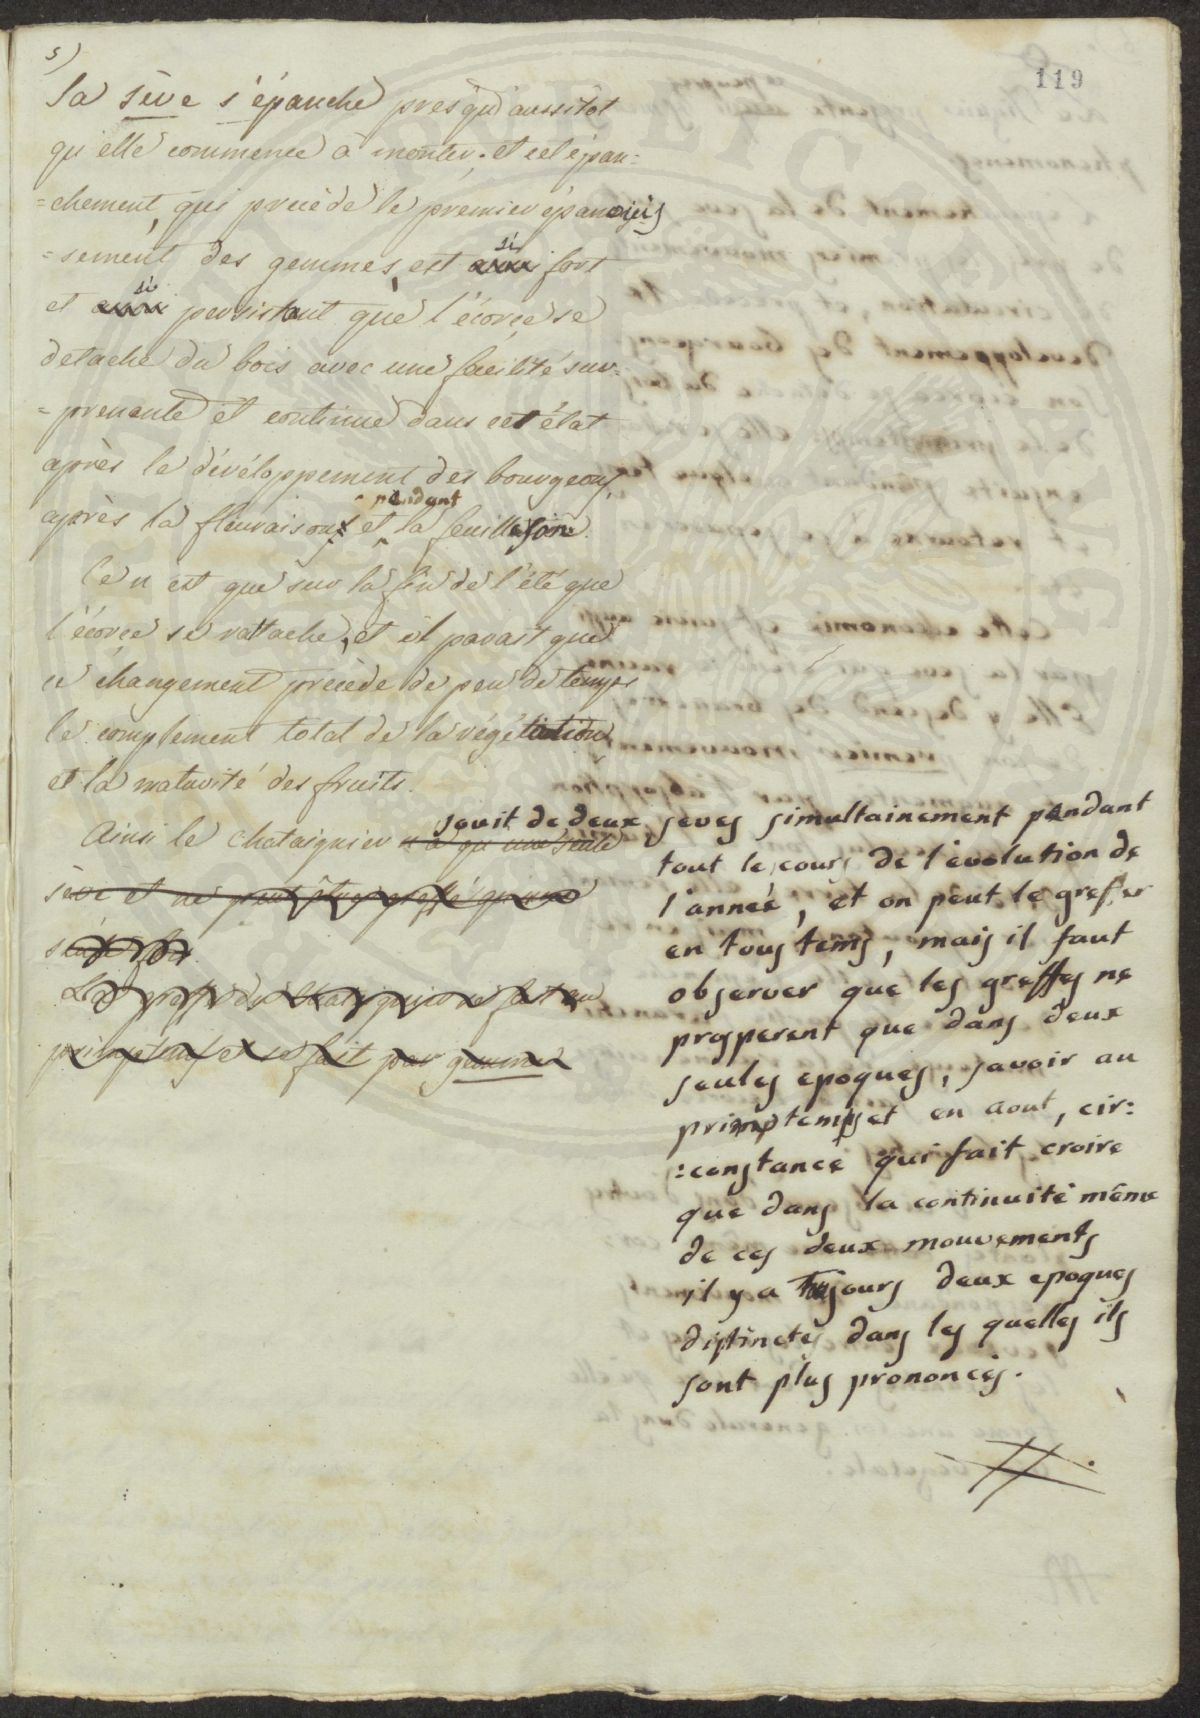 5)
119
la sève s'épanche presqu'aussitot
qu'elle commence à monter. et cet épan=
=chement, qui precède le premier épanouis
=sement des gemmes, est si fort
et si persistant que l'écorce se
detache du bois avec une facilité sur=
=prenante et continue dans cet état
après le dévéloppement des bourgeons,
pendant
après la fleuraison et la feuillaison.
Ce n'est que sur la fin de l'été que
l'écorce se rattache, et il parait que
ce changement precède de peu de temps
le complement total de la végétation
et la maturité des fruits.
Ainsi le chataignier n'a qu'une seule
sève et ne peut être greffé qu'une
seule fois.
La greffe du chataignier se fait au
printems et se fait par gemme
jouit de deux seves simultainement pendant
tout le cours de l'évolution de
l'année, et on peut le greffer
en tous tems, mais il faut
observer que les greffes ne
prosperent que dans deux
seules epoques, savoir au
primptemps et en aout, cir:
:constance qui fait croire
que dans la continuité même
de ces deux mouvements
il y a toujours deux epoques
distinctes dans les quelles ils
sont plus prononcés.